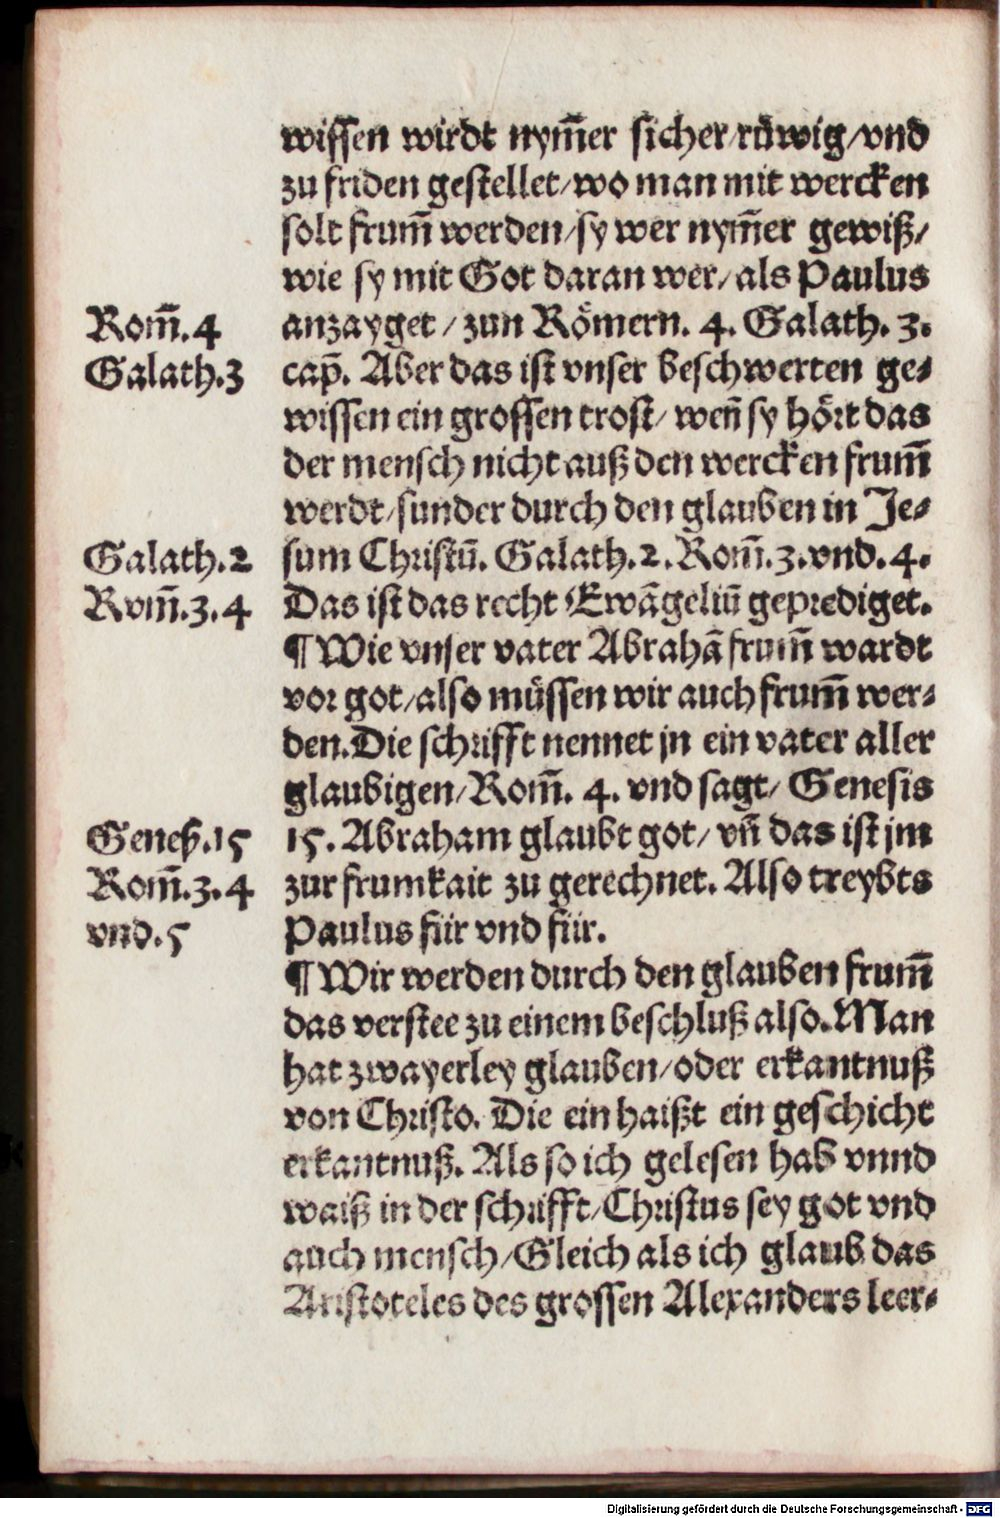 wissen wirdt nym̄er sicher/rüwig/vnd
zu friden gestellet/wo man mit wercken
solt frum̄ werden/sy wer nym̄er gewiß/
wie sy mit Got daran wer/als Paulus
Rom̄.4
anzayget/zun Römern. 4. Galath. 3.
Galath.3
cap̄. Aber das ist vnser beschwerten ge⸗
wissen ein grossen trost/wen̄ sy hört das
der mensch nicht auß den wercken frum̄
werdt/sunder durch den glauben in Je⸗
Galath.2
sum Christū. Galath.2.Rom̄.3.vnd.4.
Rom̄.3.4
Das ist das recht Ewāgeliū geprediget.
¶ Wie vnser vater Abrahā frum̄ wardt
vor got/also müssen wir auch frum̄ wer⸗
den.Die schrifft nennet jn ein vater aller
glaubigen/Rom̄. 4. vnd sagt/Genesis
Geneß.15
15. Abraham glaubt got/vn̄ das ist jm
Rom̄.3.4
zur frumkait zu gerechnet. Also treybts
vnd.5
Paulus für vnd für.
¶ Wir werden durch den glauben frum̄
das verstee zu einem beschluß also.Man
hat zwayerley glauben/oder erkantnuß
von Christo. Die ein haißt ein geschicht
erkantnuß. Als so ich gelesen hab vnnd
waiß in der schrifft/Christus sey got vnd
auch mensch/Gleich als ich glaub das
Aristoteles des grossen Alexanders leer⸗
Digitalisierung gefördert durch die Deutsche Forschungsgemeinschaft - DFG